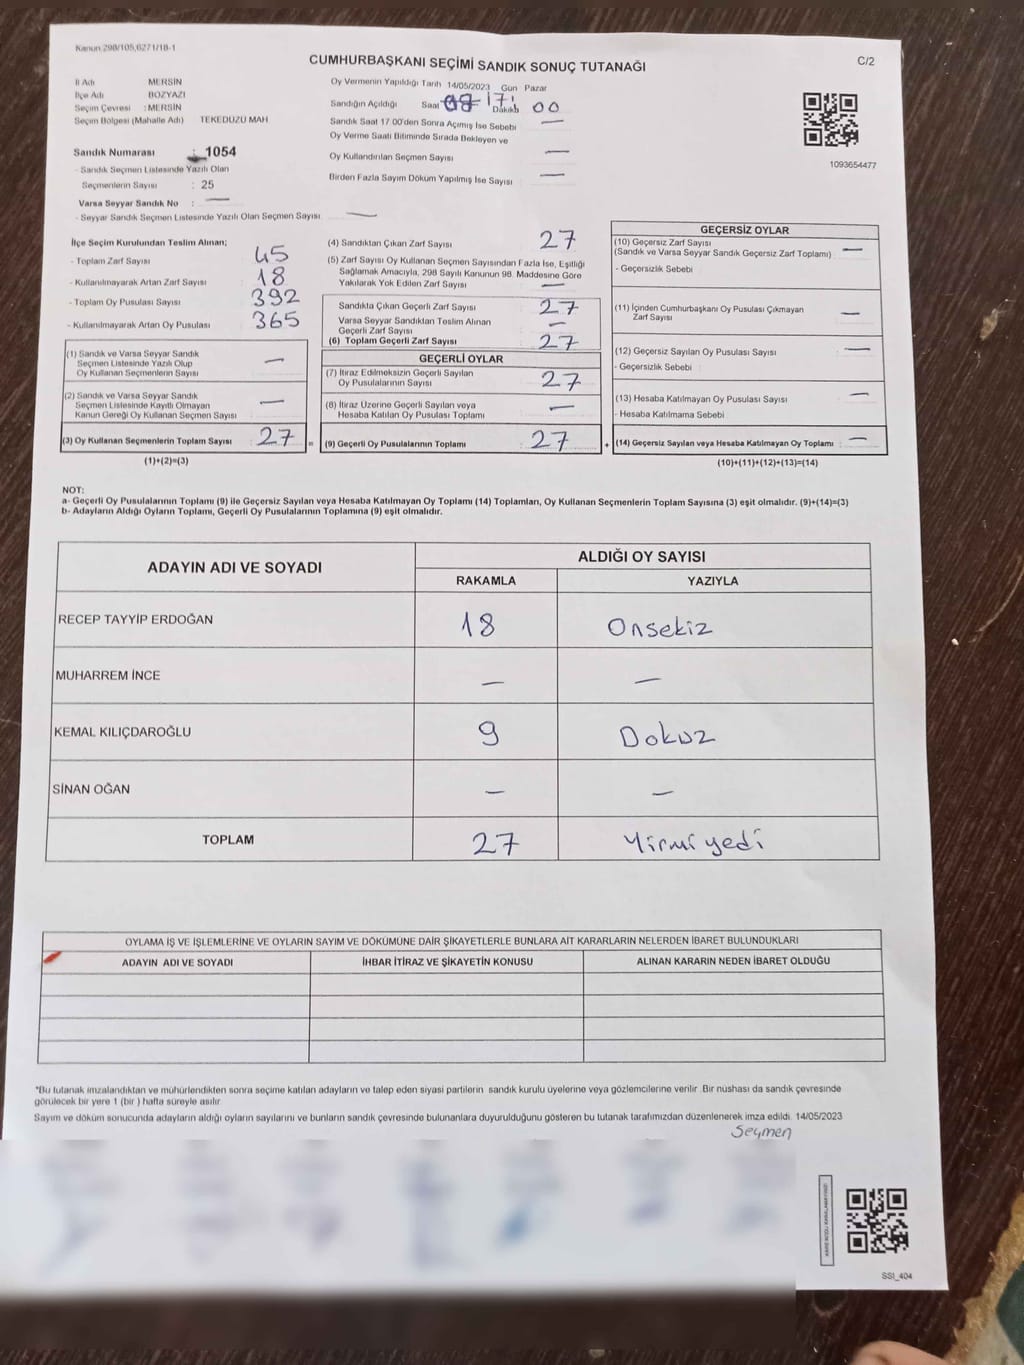 Kanun 298/105,6271/18-1
CUMHURBAŞKANI SEÇİMİ SANDIK SONUÇ TUTANAĞI
C/2
İl Adı MERSİN
İlçe Adı BOZYAZI
Seçim Çevresi : MERSİN
Seçim Bölgesi (Mahalle Adı) TEKEDÜZÜ MAH
Sandık Numarası : 1054
- Sandık Seçmen Listesinde Yazılı Olan
Seçmenlerin Sayısı : 25
Varsa Seyyar Sandık No : —
- Seyyar Sandık Seçmen Listesinde Yazılı Olan Seçmen Sayısı —
Oy Vermenin Yapıldığı Tarih 14/05/2023 Gün Pazar
Sandığın Açıldığı Saat 17 Dakika 00
Sandık Saat 17 00'den Sonra Açımış İse Sebebi —
Oy Verme Saati Bitiminde Sırada Bekleyen ve
Oy Kullandırılan Seçmen Sayısı —
Birden Fazla Sayım Döküm Yapılmış İse Sayısı —
1093654477
İlçe Seçim Kurulundan Teslim Alınan;
- Toplam Zarf Sayısı : 45
- Kullanılmayarak Artan Zarf Sayısı : 18
- Toplam Oy Pusulası Sayısı : 392
- Kullanılmayarak Artan Oy Pusulası : 365
(1) Sandık ve Varsa Seyyar Sandık
Seçmen Listesinde Yazılı Olup
Oy Kullanan Seçmenlerin Sayısı —
(2) Sandık ve Varsa Seyyar Sandık
Seçmen Listesinde Kayıtlı Olmayan
Kanun Gereği Oy Kullanan Seçmen Sayısı —
(3) Oy Kullanan Seçmenlerin Toplam Sayısı 27
(1)+(2)=(3)
(4) Sandıktan Çıkan Zarf Sayısı 27
(5) Zarf Sayısı Oy Kullanan Seçmen Sayısından Fazla İse, Eşitliği
Sağlamak Amacıyla, 298 Sayılı Kanunun 98. Maddesine Göre
Yakılarak Yok Edilen Zarf Sayısı —
Sandıkta Çıkan Geçerli Zarf Sayısı 27
Varsa Seyyar Sandıktan Teslim Alınan
Geçerli Zarf Sayısı —
(6) Toplam Geçerli Zarf Sayısı 27
GEÇERLİ OYLAR
(7) İtiraz Edilmeksizin Geçerli Sayılan
Oy Pusulalarının Sayısı 27
(8) İtiraz Üzerine Geçerli Sayılan veya
Hesaba Katılan Oy Pusulası Toplamı —
= (9) Geçerli Oy Pusulalarının Toplamı 27
GEÇERSİZ OYLAR
(10) Geçersiz Zarf Sayısı
(Sandık ve Varsa Seyyar Sandık Geçersiz Zarf Toplamı) —
- Geçersizlik Sebebi
(11) İçinden Cumhurbaşkanı Oy Pusulası Çıkmayan
Zarf Sayısı —
(12) Geçersiz Sayılan Oy Pusulası Sayısı —
- Geçersizlik Sebebi
(13) Hesaba Katılmayan Oy Pusulası Sayısı —
- Hesaba Katılmama Sebebi
+ (14) Geçersiz Sayılan veya Hesaba Katılmayan Oy Toplamı —
(10)+(11)+(12)+(13)=(14)
NOT:
a- Geçerli Oy Pusulalarının Toplamı (9) ile Geçersiz Sayılan veya Hesaba Katılmayan Oy Toplamı (14) Toplamları, Oy Kullanan Seçmenlerin Toplam Sayısına (3) eşit olmalıdır. (9)+(14)=(3)
b- Adayların Aldığı Oyların Toplamı, Geçerli Oy Pusulalarının Toplamına (9) eşit olmalıdır.
ADAYIN ADI VE SOYADI ALDIĞI OY SAYISI
RAKAMLA YAZIYLA
RECEP TAYYİP ERDOĞAN 18 Onsekiz
MUHARREM İNCE — —
KEMAL KILIÇDAROĞLU 9 Dokuz
SİNAN OĞAN — —
TOPLAM 27 Yirmiyedi
OYLAMA İŞ VE İŞLEMLERİNE VE OYLARIN SAYIM VE DÖKÜMÜNE DAİR ŞİKAYETLERLE BUNLARA AİT KARARLARIN NELERDEN İBARET BULUNDUKLARI
ADAYIN ADI VE SOYADI İHBAR İTİRAZ VE ŞİKAYETİN KONUSU ALINAN KARARIN NEDEN İBARET OLDUĞU
*Bu tutanak imzalandıktan ve mühürlendikten sonra seçime katılan adayların ve talep eden siyasi partilerin sandık kurulu üyelerine veya gözlemcilerine verilir. Bir nüshası da sandık çevresinde
görülecek bir yere 1 (bir) hafta süreyle asılır.
Sayım ve döküm sonucunda adayların aldığı oyların sayılarını ve bunların sandık çevresinde bulunanlara duyurulduğunu gösteren bu tutanak tarafımızdan düzenlenerek imza edildi. 14/05/2023
Seçmen
SSI_404